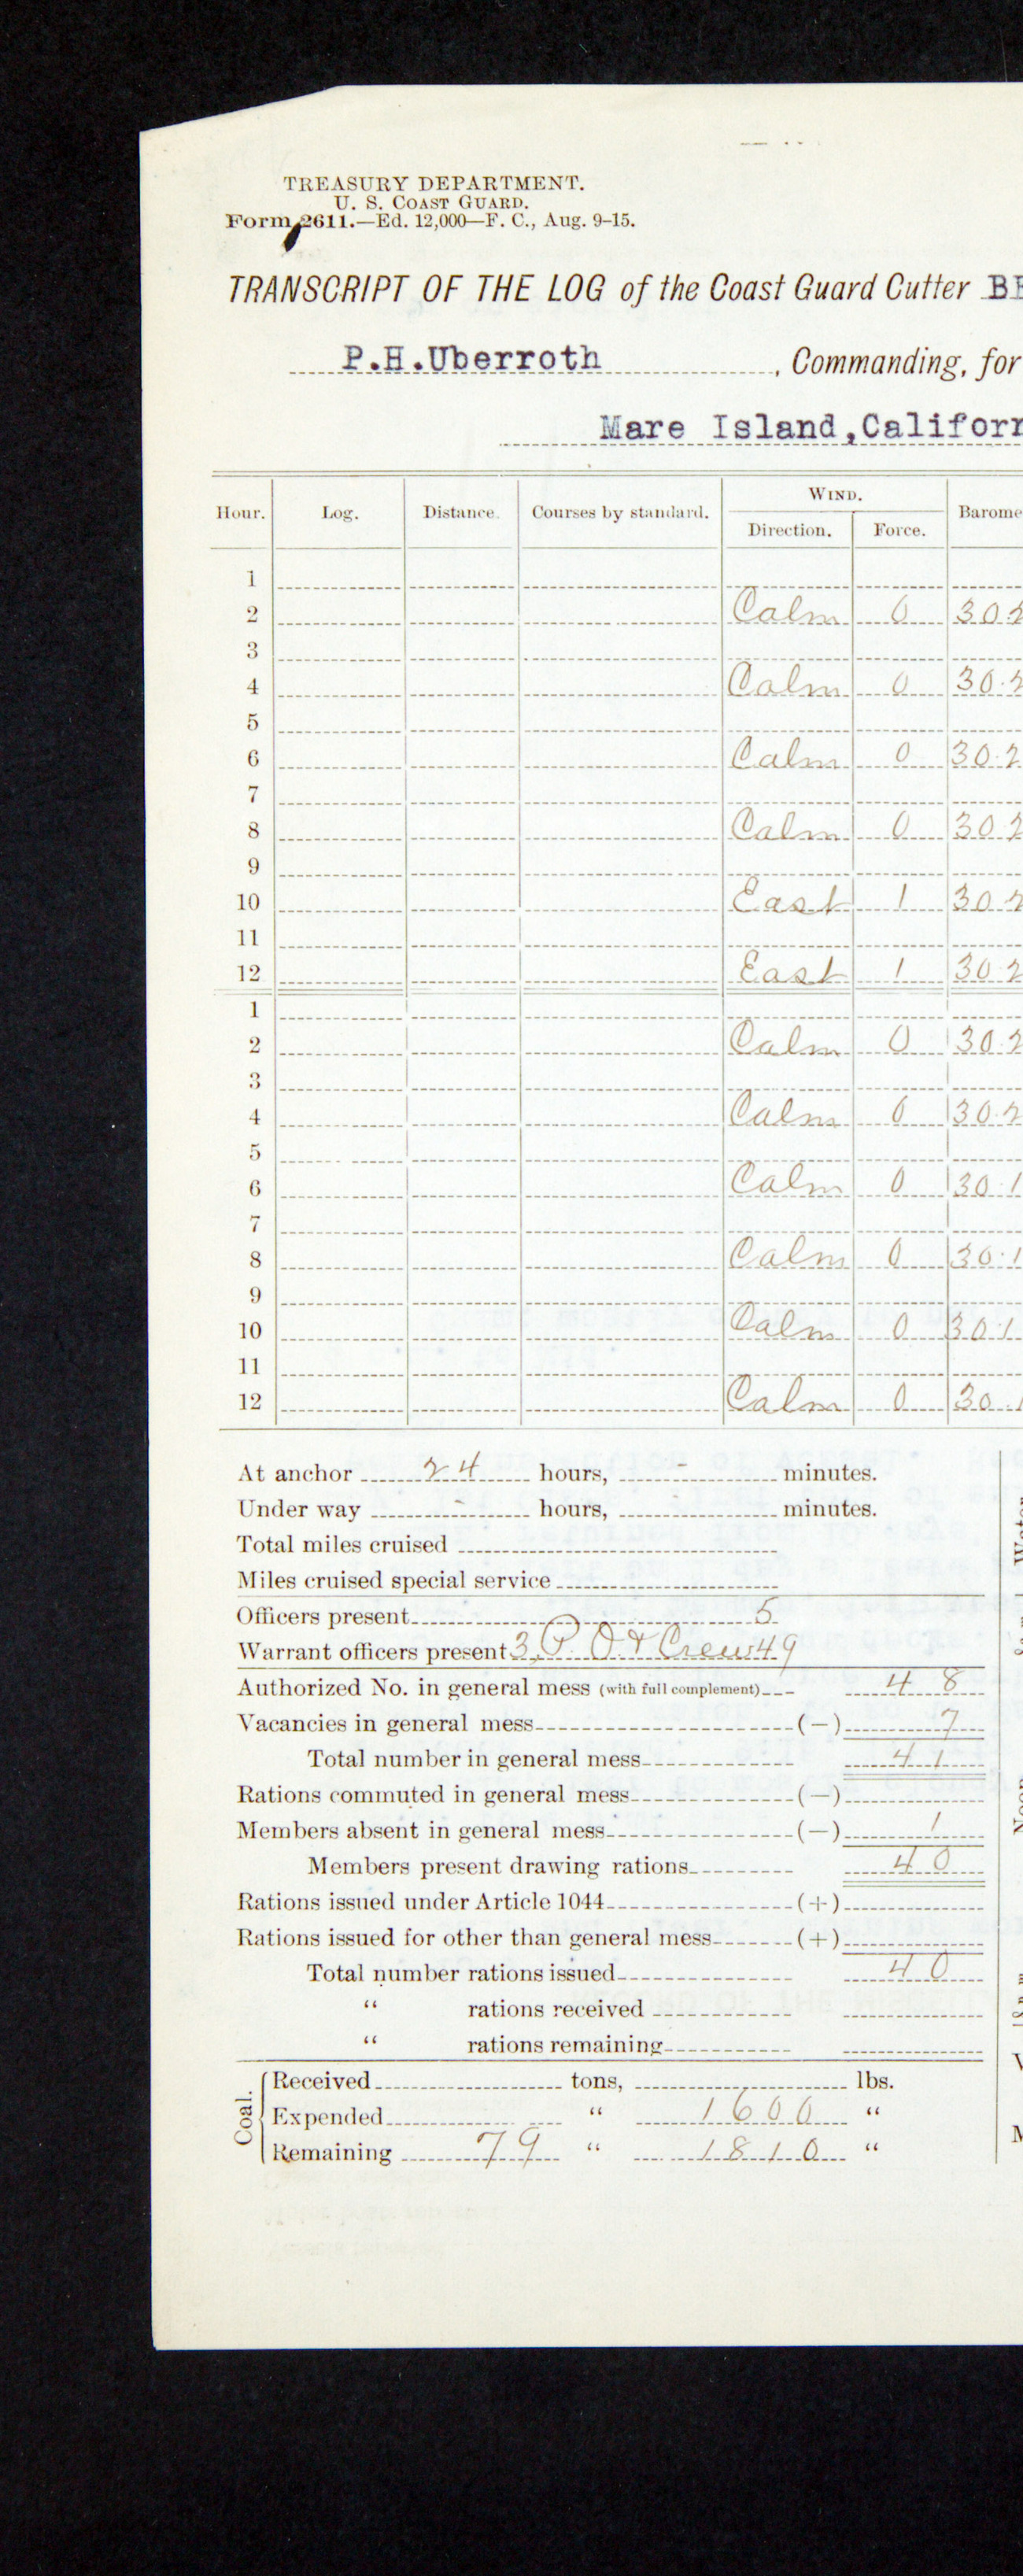 TREASURY DEPARTMENT.
U. S. COAST GUARD.
Form 2611.—Ed. 12,000—F. C., Aug. 9–15.
TRANSCRIPT OF THE LOG of the Coast Guard Cutter
P.H.Uberroth , Commanding, for
Mare Island,Califor
Hour. Log. Distance. Courses by standard. WIND. Barome
Direction. Force.
1
2 Calm 0 30.2
3
4 Calm 0 30.2
5
6 Calm 0 30.2
7
8 Calm 0 30.2
9
10 East 1 30.2
11
12 East 1 30.2
1
2 Calm 0 30.2
3
4 Calm 0 30.2
5
6 Calm 0 30.1
7
8 Calm 0 30.1
9
10 Calm 0 30.1
11
12 Calm 0 30.1
At anchor 24 hours, - minutes.
Under way - hours, minutes.
Total miles cruised
Miles cruised special service
Officers present 5
Warrant officers present 3, P. O & Crew 49
Authorized No. in general mess (with full complement) 48
Vacancies in general mess (—) 7
Total number in general mess 41
Rations commuted in general mess (—)
Members absent in general mess (—) 1
Members present drawing rations 40
Rations issued under Article 1044 (+)
Rations issued for other than general mess (+)
Total number rations issued 40
“ rations received
“ rations remaining
Coal.
Received tons, lbs.
Expended “ 1600 “
Remaining 79 “ 1810 “